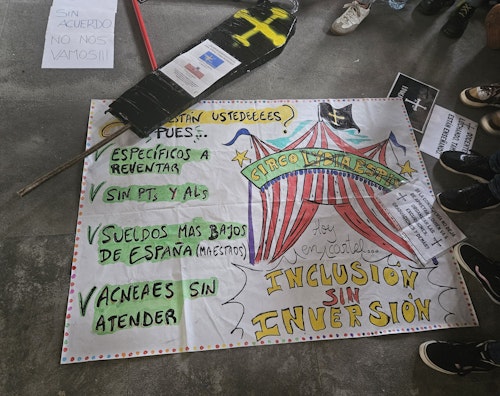 SIN
ACUERDO
NO NOS
VAMOS!!!
ESTÁN USTEDEEEES?
PUES...
✓ ESPECÍFICOS A
REVENTAR
✓ SIN PTs Y ALs
✓ SUELDOS MAS BAJOS
DE ESPAÑA (MAESTROS)
✓ ACNEAEs SIN
ATENDER
CIRCO LYDIA ESPINA
Hoy
en cartel...
INCLUSIÓN
SIN
INVERSIÓN